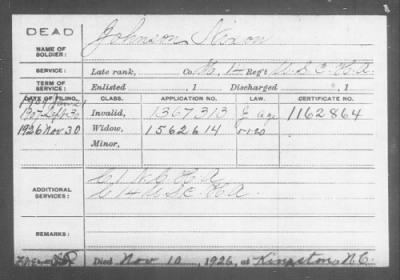 DEAD
NAME OF SOLDIER: Johnson, Nixon
SERVICE: Late rank, Co. M, 1 Reg't U.S.C.H.A.
TERM OF SERVICE: Enlisted , 1 Discharged , 1
DATE OF FILING. CLASS. APPLICATION NO. LAW. CERTIFICATE NO.
1907 Sept 30 Invalid, 1367313 G age 1162864
1926 Nov 30 Widow, 1562614
Minor,
ADDITIONAL SERVICES: 1 N.C. H.A.
14 U.S.C. H.A.
REMARKS:
Died Nov 10, 1926, at Kingston, N.C.